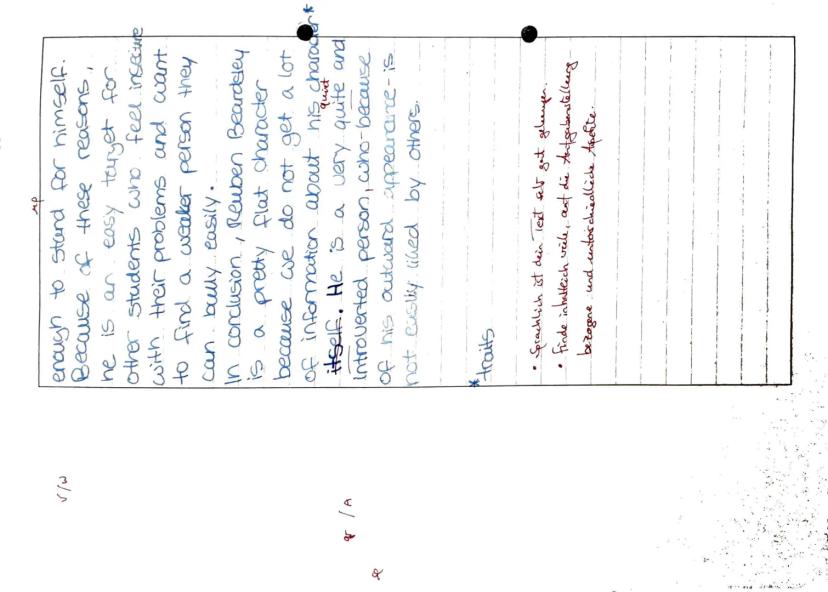 enough to stand up for himself.
Because of these reasons,
he is an easy target for
other students who feel insecure
with their problems and want
to find a weaker person they
can bully easily.
In conclusion, Reuben Beardsley
is a pretty flat character
because we do not get a lot
of information about his character*
itself. He is a very quite and
quiet
introverted person, who-because
of his outward appearance-is
not easily liked by others.
*traits
• Sprachlich ist dein Text sehr gut gelungen.
• Finde inhaltlich viele, auf die Aufgabenstellung
bezogene und unterschiedliche Aspekte.